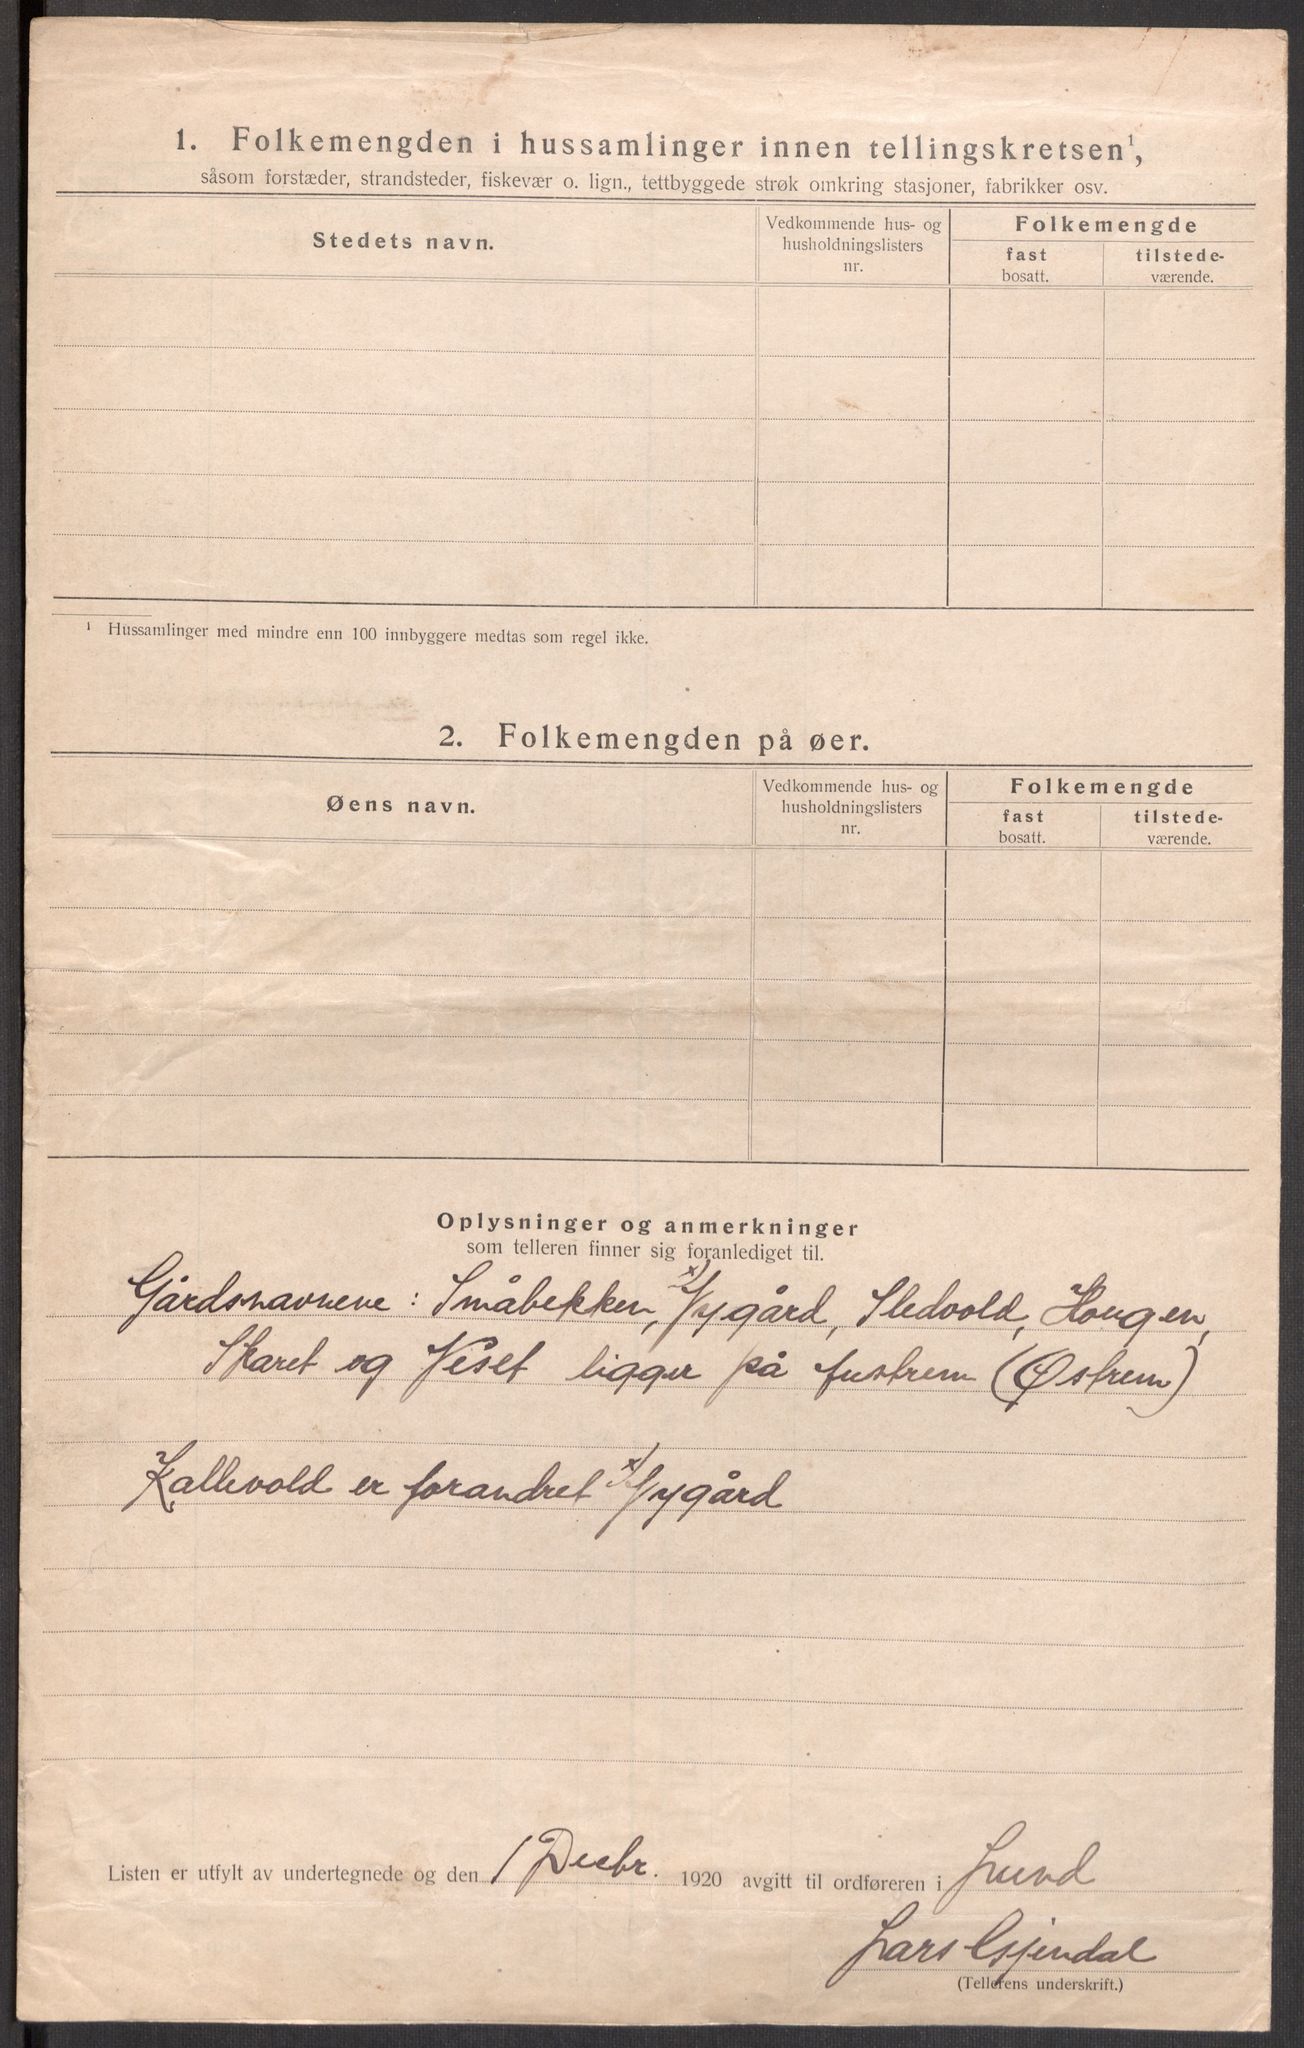 1. Folkemengden i hussamlinger innen tellingskretsen¹,
såsom forstæder, strandsteder, fiskevær o. lign., tettbyggede strøk omkring stasjoner, fabrikker osv.
Stedets navn.
Vedkommende hus- og
husholdningslisters
nr.
Folkemengde
fast
bosatt.
tilstede-
værende.
¹ Hussamlinger med mindre enn 100 innbyggere medtas som regel ikke.
2. Folkemengden på øer.
Øens navn.
Vedkommende hus- og
husholdningslisters
nr.
Folkemengde
fast
bosatt.
tilstede-
værende.
Oplysninger og anmerkninger
som telleren finner sig foranlediget til.
Gårdsnavnene: Småbekken, x) Nygård, Sledvold, Hougen,
Skaret og Veset ligger på (Østrem)
Kallevold er forandret x) Nygård
Listen er utfylt av undertegnede og den 1 Decbr. 1920 avgitt til ordføreren i Lund
Lars Gjendal
(Tellerens underskrift.)